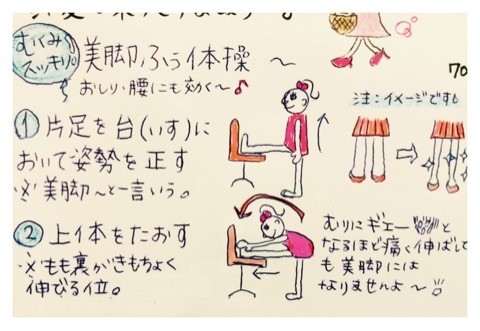 むくみ
スッキリ。
美脚ふぅ体操 〜
おしり・腰にも効く〜♪
70
注:イメージです。
① 片足を台(いす)に
おいて姿勢を正す
※美脚〜と一言いう。
② 上体をたおす
※もも裏がきもちよく
伸びる位。
むりにギエーと
なるほど痛く伸ばして
も美脚には
なりませんよ〜